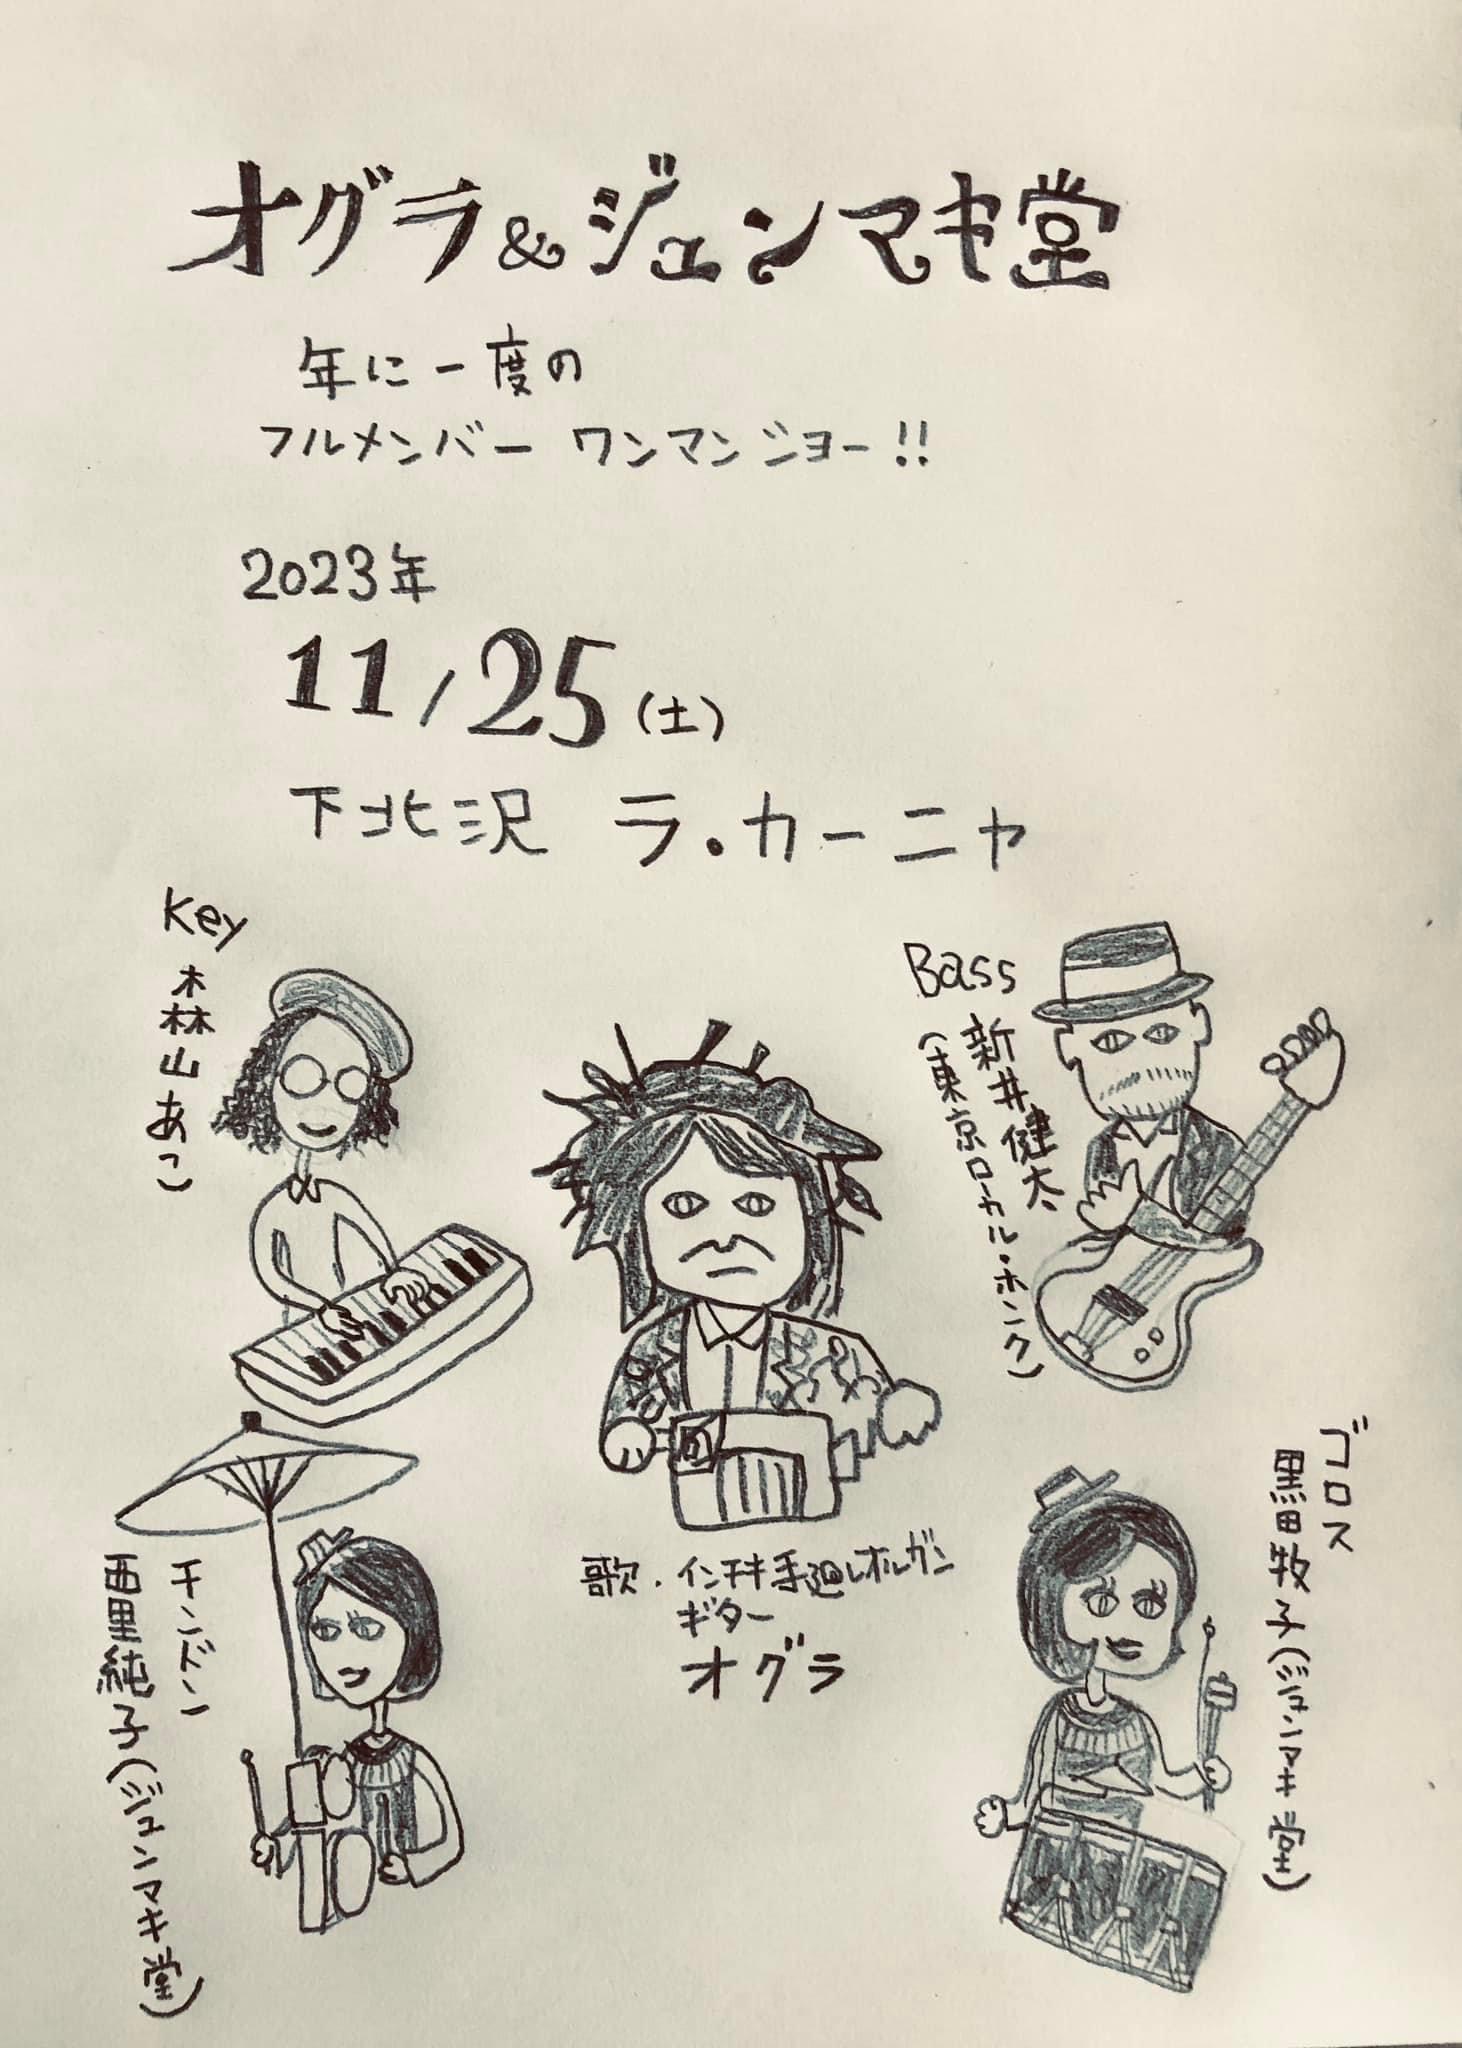 オグラ&ジュンマキ堂
年に一度の
フルメンバー ワンマンショー!!
2023年
11/25(土)
下北沢 ラ・カーニャ
Key
森山あこ
Bass
新井健太
(東京ローカル・ホンク)
歌・インチキ手廻しオルガン
ギター
オグラ
チンドン
西里純子(ジュンマキ堂)
ゴロス
黒田牧子(ジュンマキ堂)